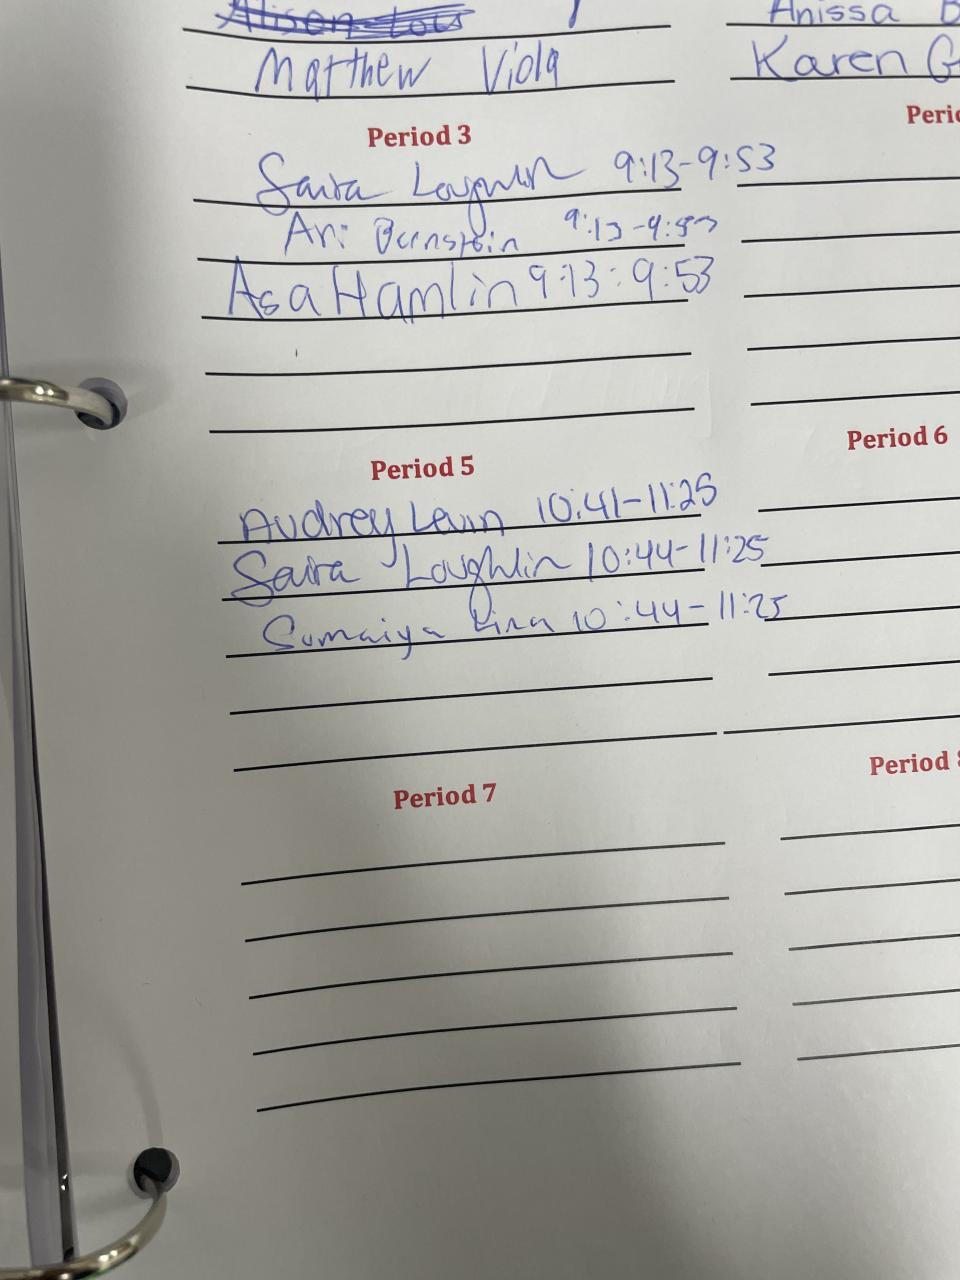 Matthew Viola
Anissa
Karen G
Period 3
Saira Loughlin 9:13-9:53
Ari Bernstein 9:13-9:53
Asa Hamlin 9:13-9:53
Period 5
Period 6
Audrey Levin 10:41-11:25
Saira Loughlin 10:44-11:25
Sumaiya 10:44-11:25
Period 7
Period 8